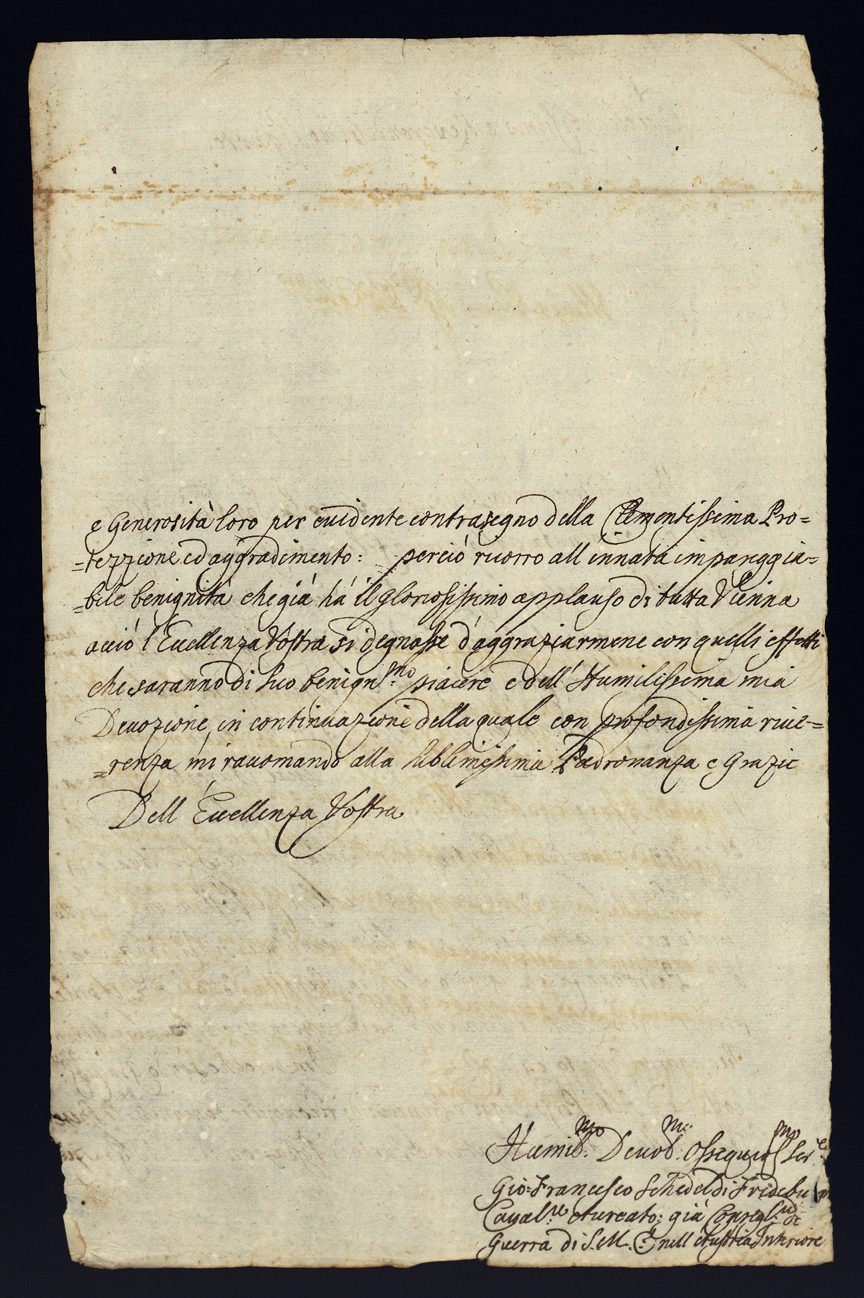 e Generosità loro per euidente contrasegno della Clementissima Pro=
=tezzione ed aggradimento: perciò ricorro all'innata impareggia=
=bile benignità che già hà il gloriosissimo applauso di tutta Vienna
acciò l'Eccellenza Vostra si degnasse d'aggraziarmene con quelli effetti
che saranno di Suo benign.mo piacere e dell'Humilissima mia
Devozione, in continuazione della quale con profondissima riue=
=renza mi raccomando alla sublimissima Padronanza e Grazie
Dell'Eccellenza Vostra
Humil.mo Deuot.mo Ossequios.mo Ser.e
Gio: Francesco Schedel di Fridebu
Caual.re Aureato: già Consigl.re di
Guerra di S.M. C: nell'Austria Interiore